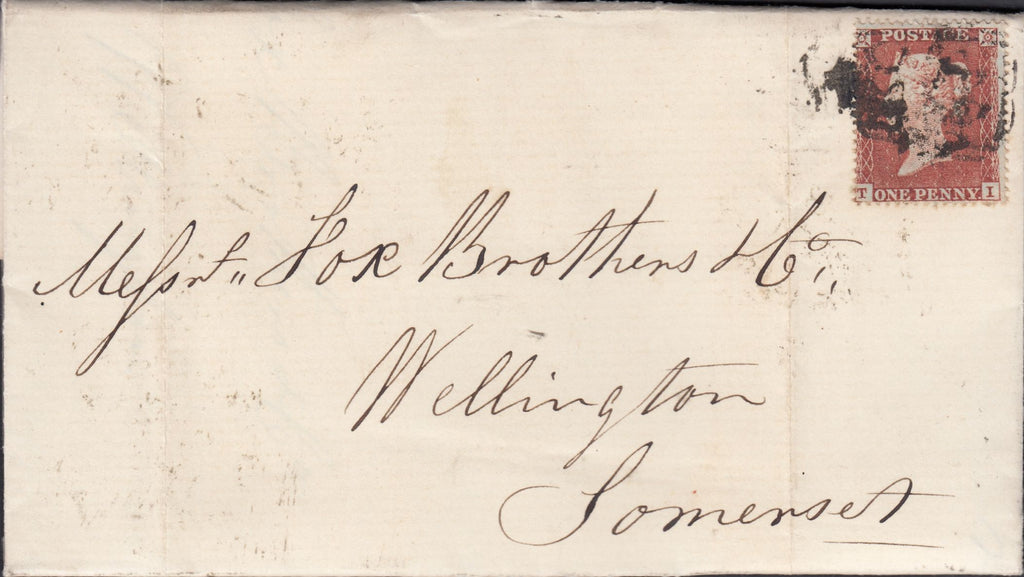 POSTAGE
T ONE PENNY I
Messrs. Fox Brothers & Co.,
Wellington
Somerset